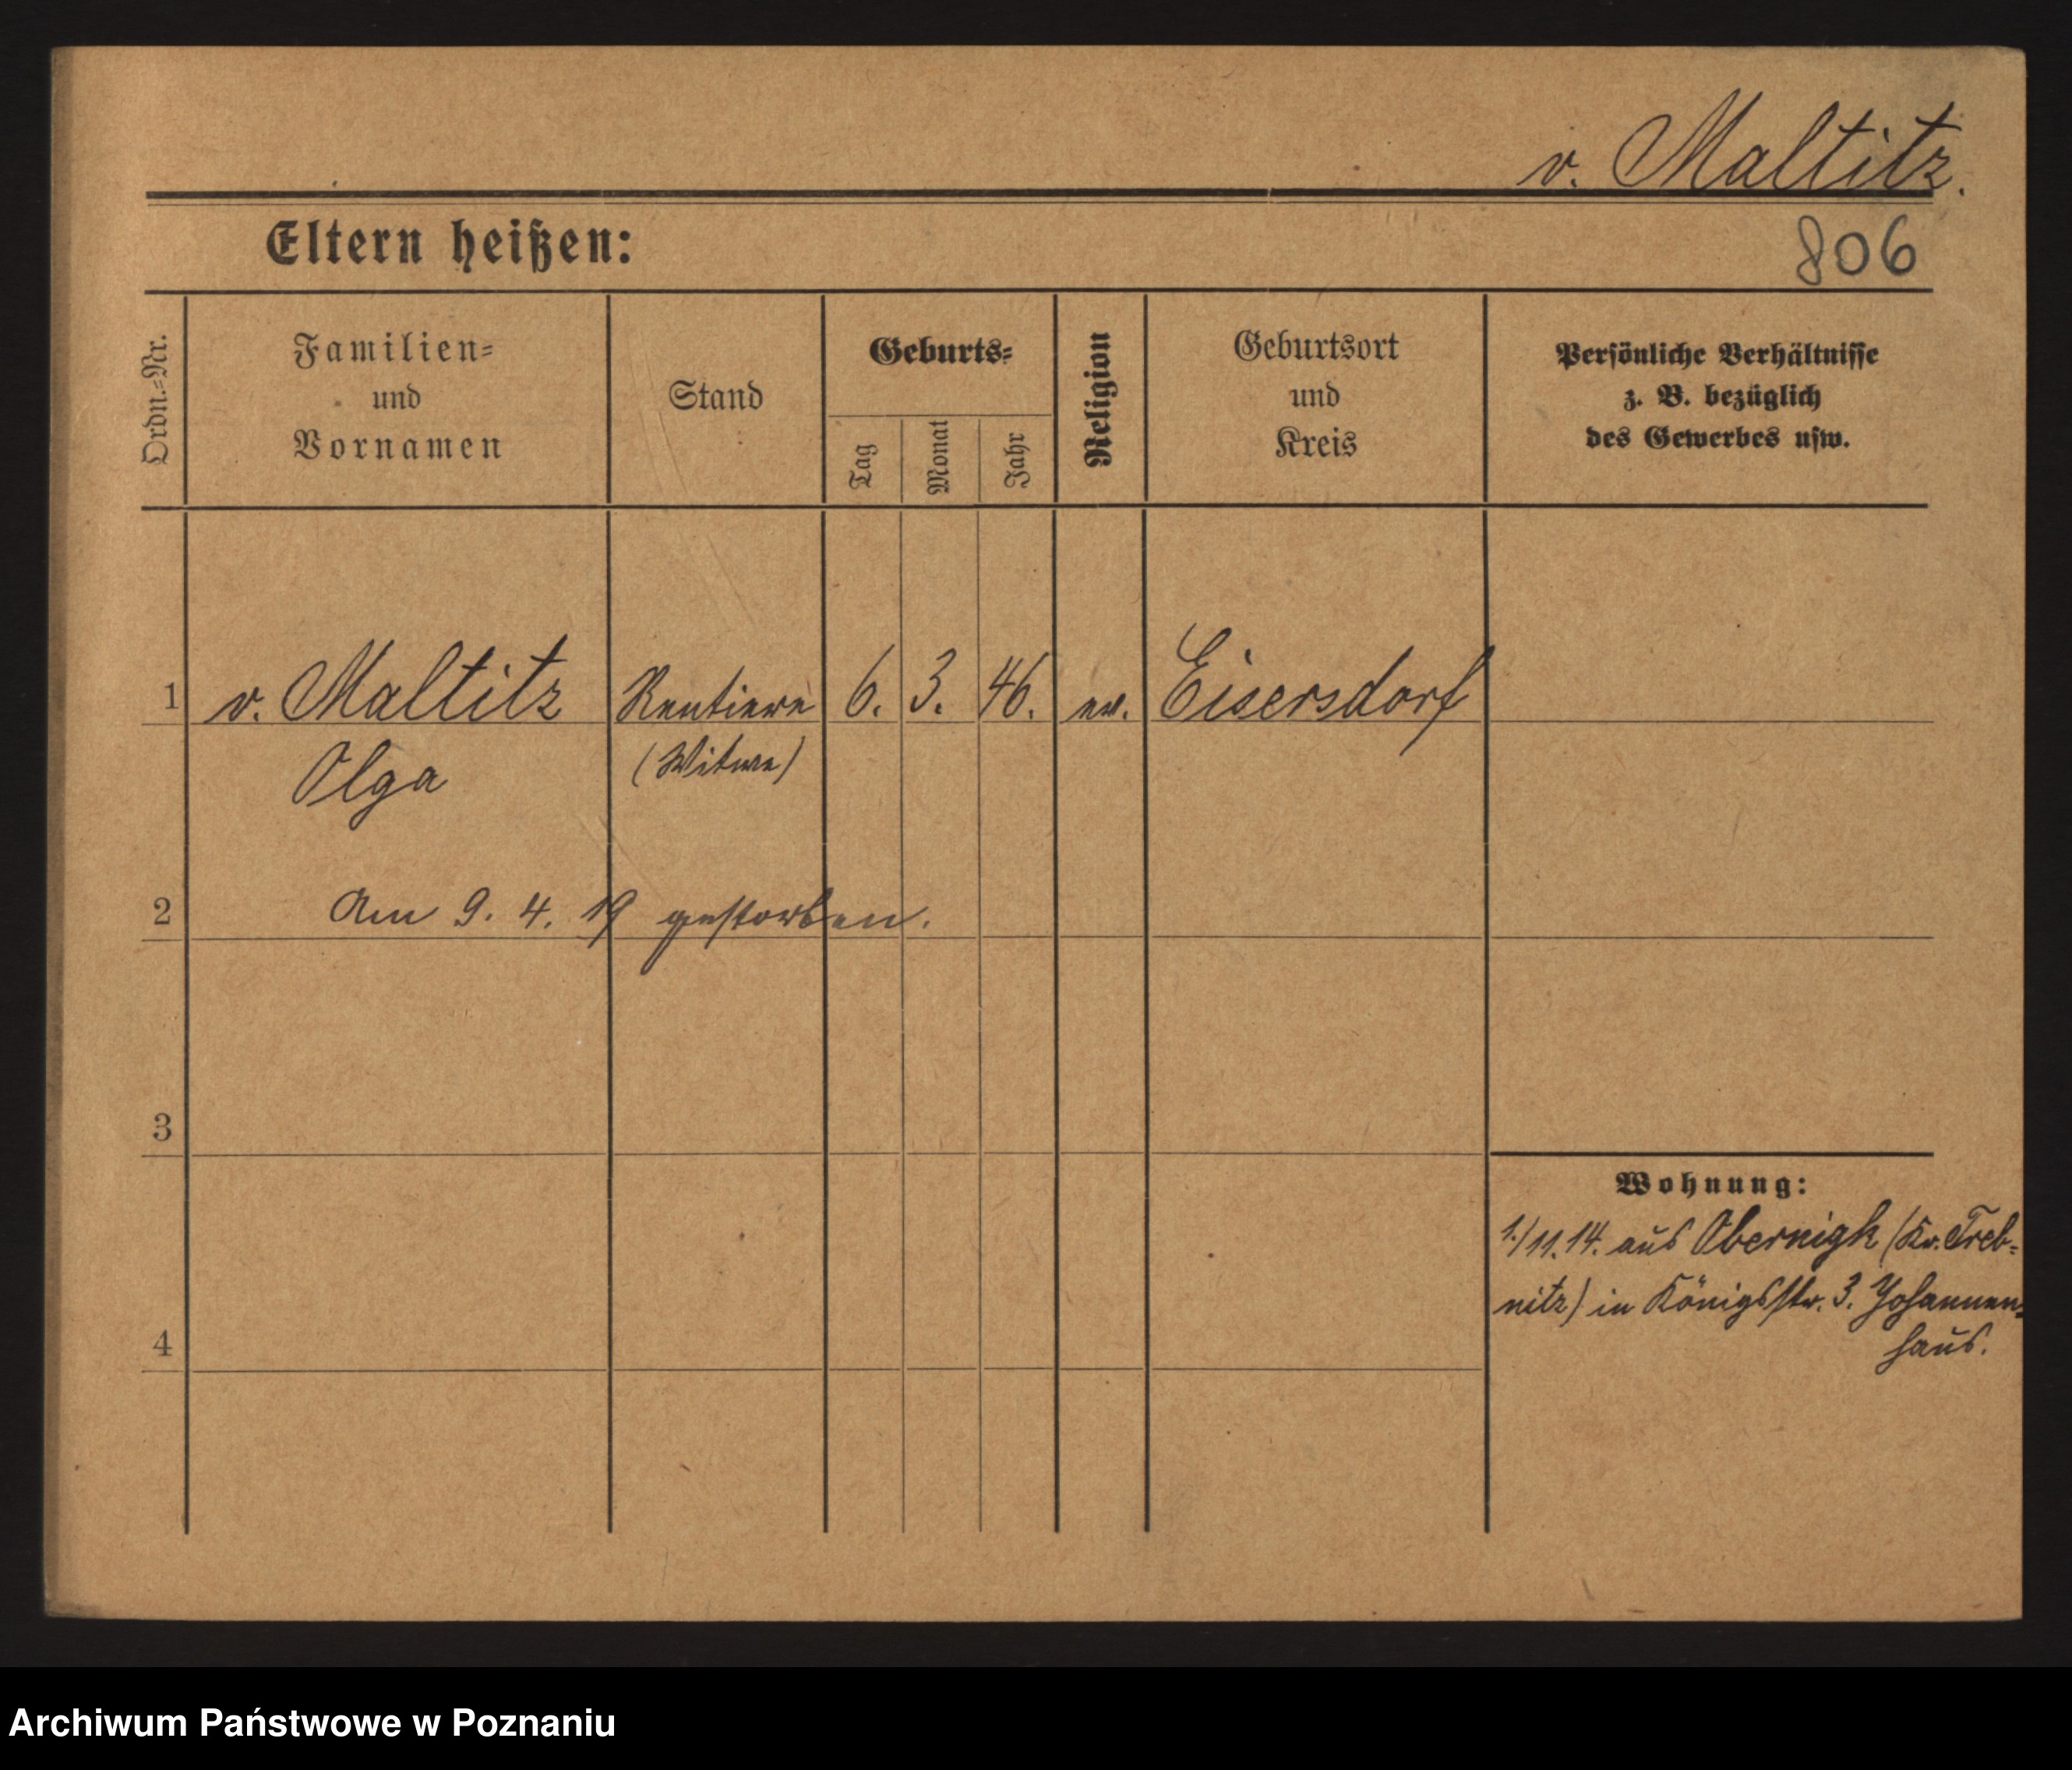 v. Maltitz.
Eltern heißen:
806
Ordn.-Nr.
Familien-
und
Vornamen
Stand
Geburts-
Tag
Monat
Jahr
Religion
Geburtsort
und
Kreis
Persönliche Verhältnisse
z. B. bezüglich
des Gewerbes usw.
1 v. Maltitz Rentiere 6. 3. 46. ev. Eisersdorf
Olga (Witwe)
2 Am 9. 4. 19 gestorben.
3
Wohnung:
1./11.14. aus Obernigk (Kr. Treb-
nitz) in Königsstr. 3. Johannen-
haus.
4
Archiwum Państwowe w Poznaniu